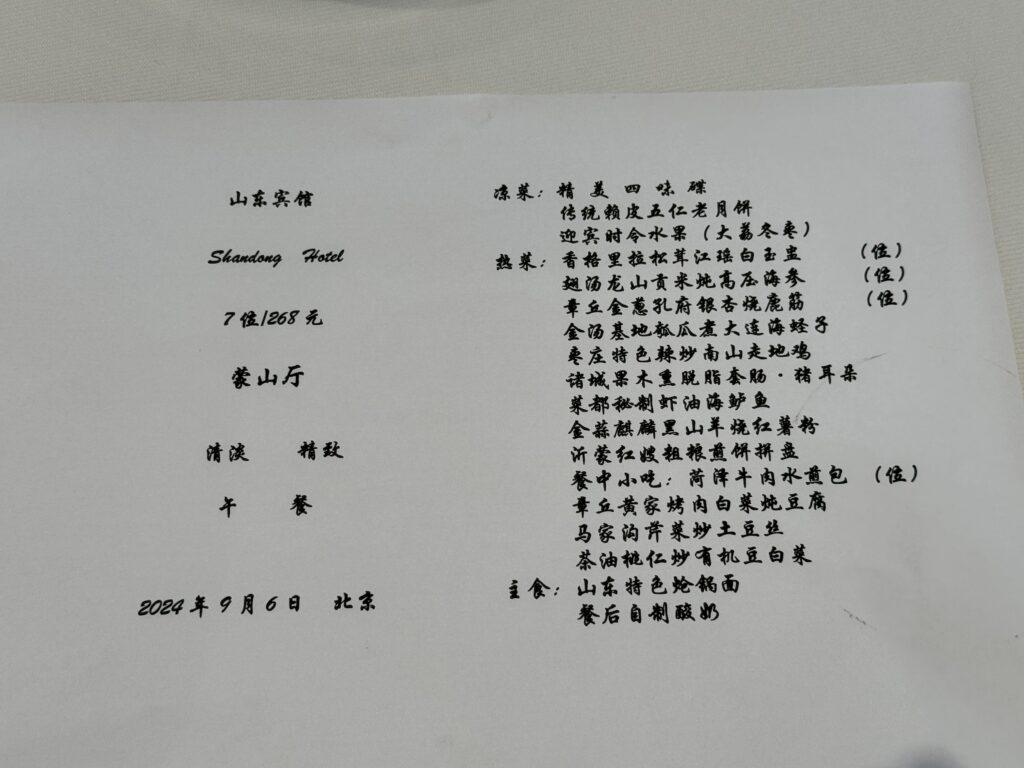 山东宾馆
Shandong Hotel
7位/268元
蒙山厅
清淡 精致
午 餐
2024年9月6日 北京
凉菜：精 美 四 味 碟
传统赖皮五仁老月饼
迎宾时令水果（大荔冬枣）
热菜：香格里拉松茸江瑶白玉盅 （位）
翅汤龙山贡米炖高压海参 （位）
章丘金葱孔府银杏烧鹿筋 （位）
金汤基地瓠瓜煮大连海蛏子
枣庄特色辣炒南山走地鸡
诸城果木熏脱脂套肠·猪耳朵
菜都秘制虾油海鲈鱼
金蒜麒麟黑山羊烧红薯粉
沂蒙红嫂粗粮煎饼拼盘
餐中小吃：菏泽牛肉水煎包 （位）
章丘黄家烤肉白菜炖豆腐
马家沟芹菜炒土豆丝
茶油桃仁炒有机豆白菜
主食：山东特色炝锅面
餐后自制酸奶